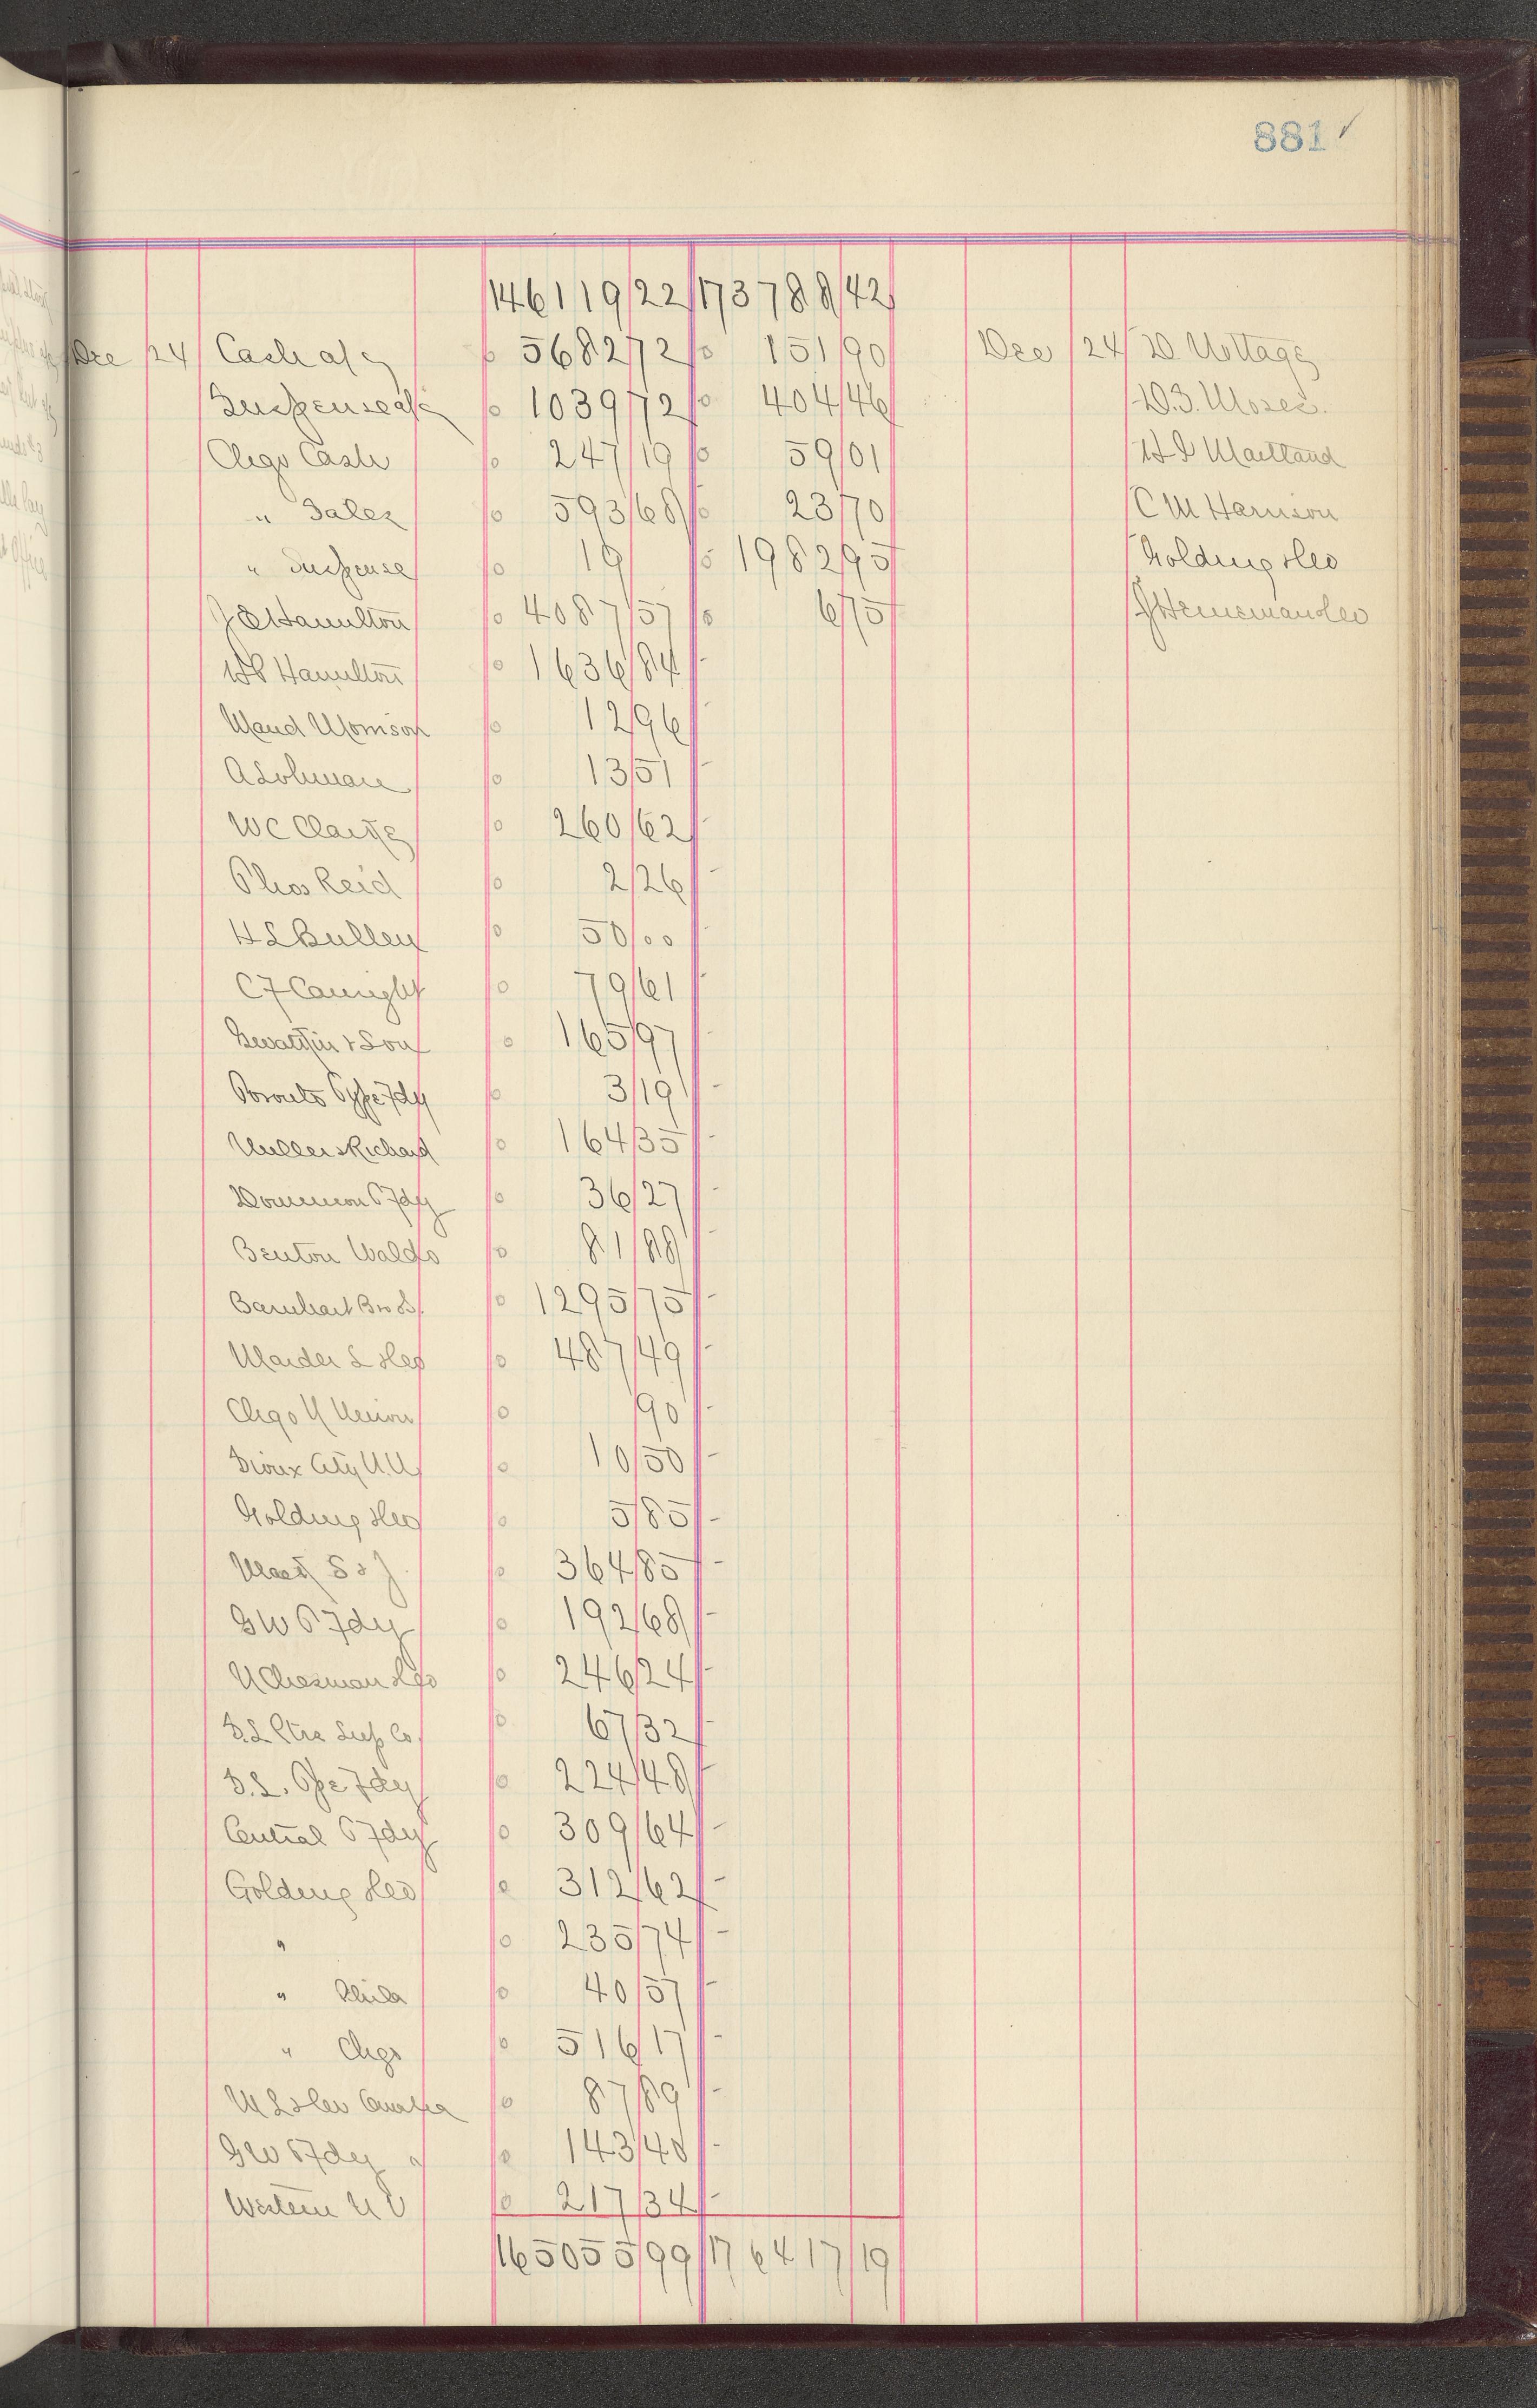 881 ✓
146119 22 173788 42
Dec 24 Cash a/c 5682 72 151 90 Dec 24 D Nottage
Suspense a/c 1039 72 404 46 D.S. Moses
Chgo Cash 247 19 59 01 Maitland
" Sales 593 68 23 70 C M Harrison
" Suspense 19 1982 95 Golding & Co
J E Hamilton 4087 57 6 75 Heineman & Co
Hamilton 1636 84
Maud Morrison 12 96
A Lohman 13 51
W C Clarke 260 62
Thos Reid 2 26
H L Bullen 50 00
C F Cartright 79 61
& Son 165 97
Toronto Type Fdy 3 19
Miller & Richard 164 35
Dominion T Fdy 36 27
Benton Waldo 81 88
Barnhart Bros & S. 1295 75
Marder L & Co 487 49
Chgo N Union 90
Sioux City N.U. 10 50
Golding & Co 5 85
S & J. 364 85
G W T Fdy 192 68
N Chesman & Co 246 24
S.L. Ptrs Sup Co. 67 32
S.L. Type Fdy 224 48
Central T Fdy 309 64
Golding & Co 312 62
" 235 74
" Phila 40 57
" Chgo 516 17
M L & Co Omaha 87 89
G W T Fdy " 143 48
Western N U 217 34
165055 99 176417 19